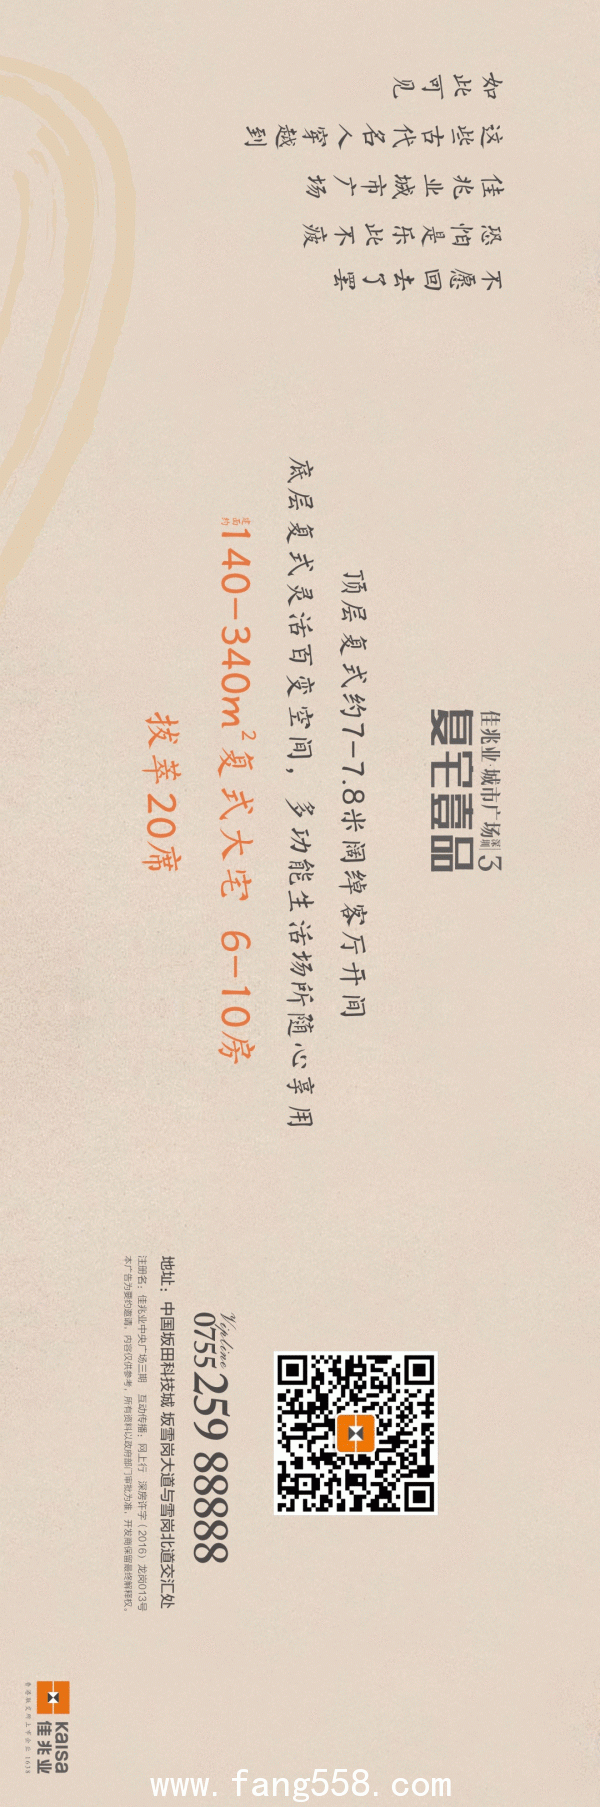 如此可见
这些古代名人穿越到
佳兆业城市广场
恐怕是乐此不疲
不愿回去了罢
佳兆业·城市广场 深圳 3
复宅壹品
顶层复式约7-7.8米阔绰客厅开间
底层复式灵活百变空间，多功能生活场所随心享用
建面约140-340m²复式大宅 6-10房
拔萃20席
Vipline
0755 259 88888
地址：中国坂田科技城 坂雪岗大道与雪岗北道交汇处
注册名：佳兆业中央广场三期 互动传播：网上行 深房许字（2016）龙岗013号
本广告为要约邀请，内容仅供参考，所有资料以政府部门审批为准，开发商保留最终解释权。
Kaisa
佳兆业
香港联交所上市企业 1638
www.fang558.com